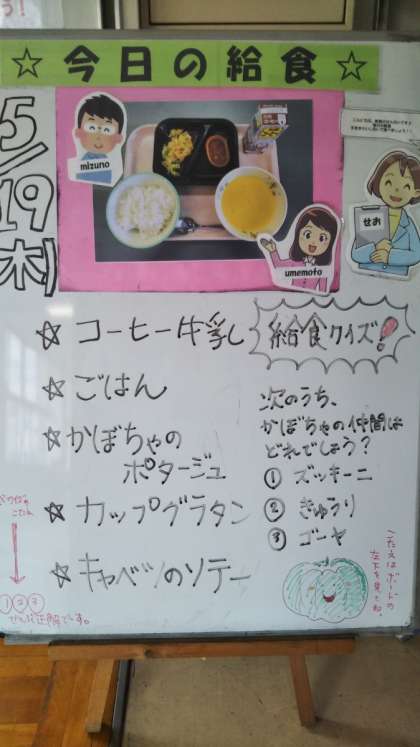 ☆今日の給食☆
5/19(木)
mizuno
umemoto
せお
☆コーヒー牛乳
☆ごはん
☆かぼちゃの
ポタージュ
☆カップグラタン
☆キャベツのソテー
給食クイズ!
次のうち、
かぼちゃの仲間は
どれでしょう?
①ズッキーニ
②きゅうり
③ゴーヤ
こたえはボードの
左下を見てね。
クイズの
こたえ
①②③
ぜんぶ正解です。